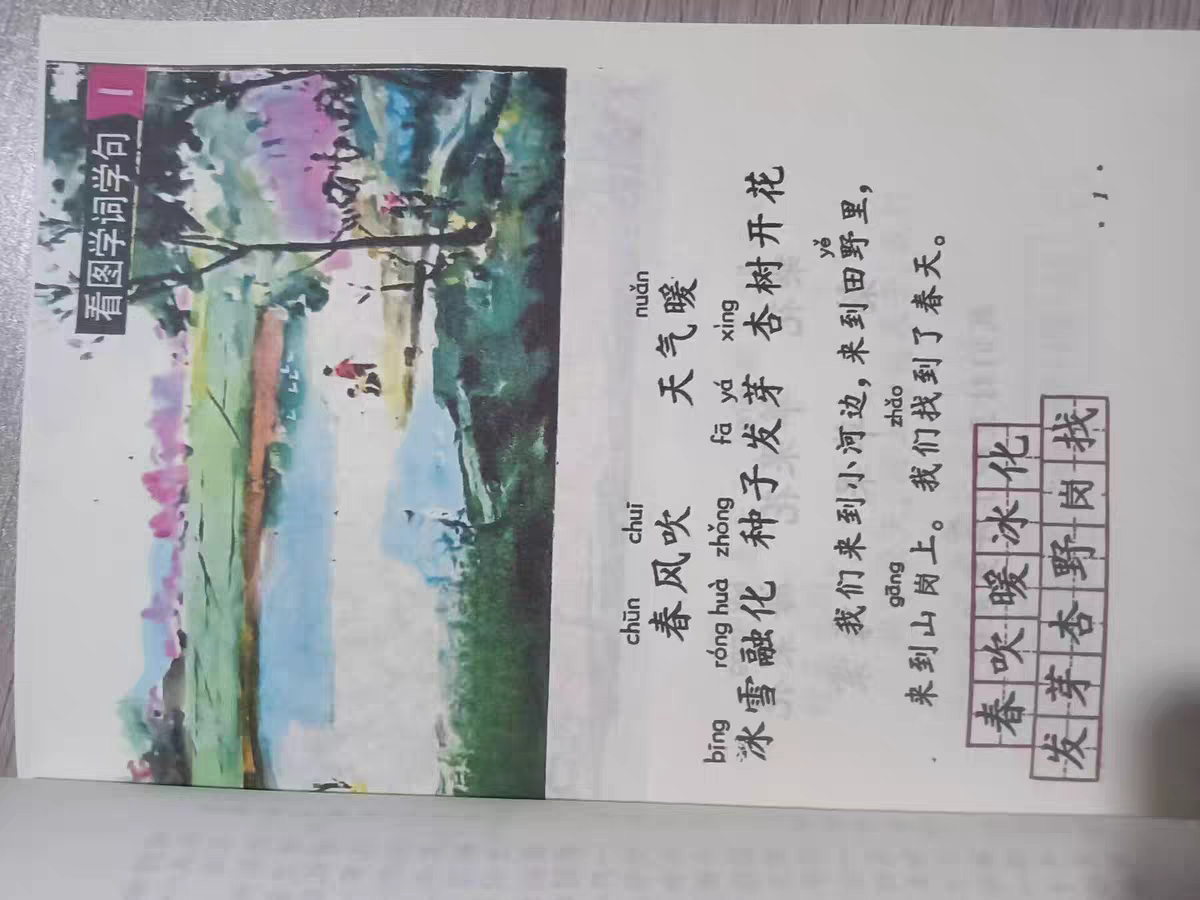 看图学词学句 1
chūn chuī nuǎn
春风吹 天气暖
bīng róng huà zhǒng fā yá xìng
冰雪融化 种子发芽 杏树开花
yě
我们来到小河边，来到田野里，
gāng zhǎo
来到山岗上。我们找到了春天。
春吹暖冰化
发芽杏野岗找
· 1 ·